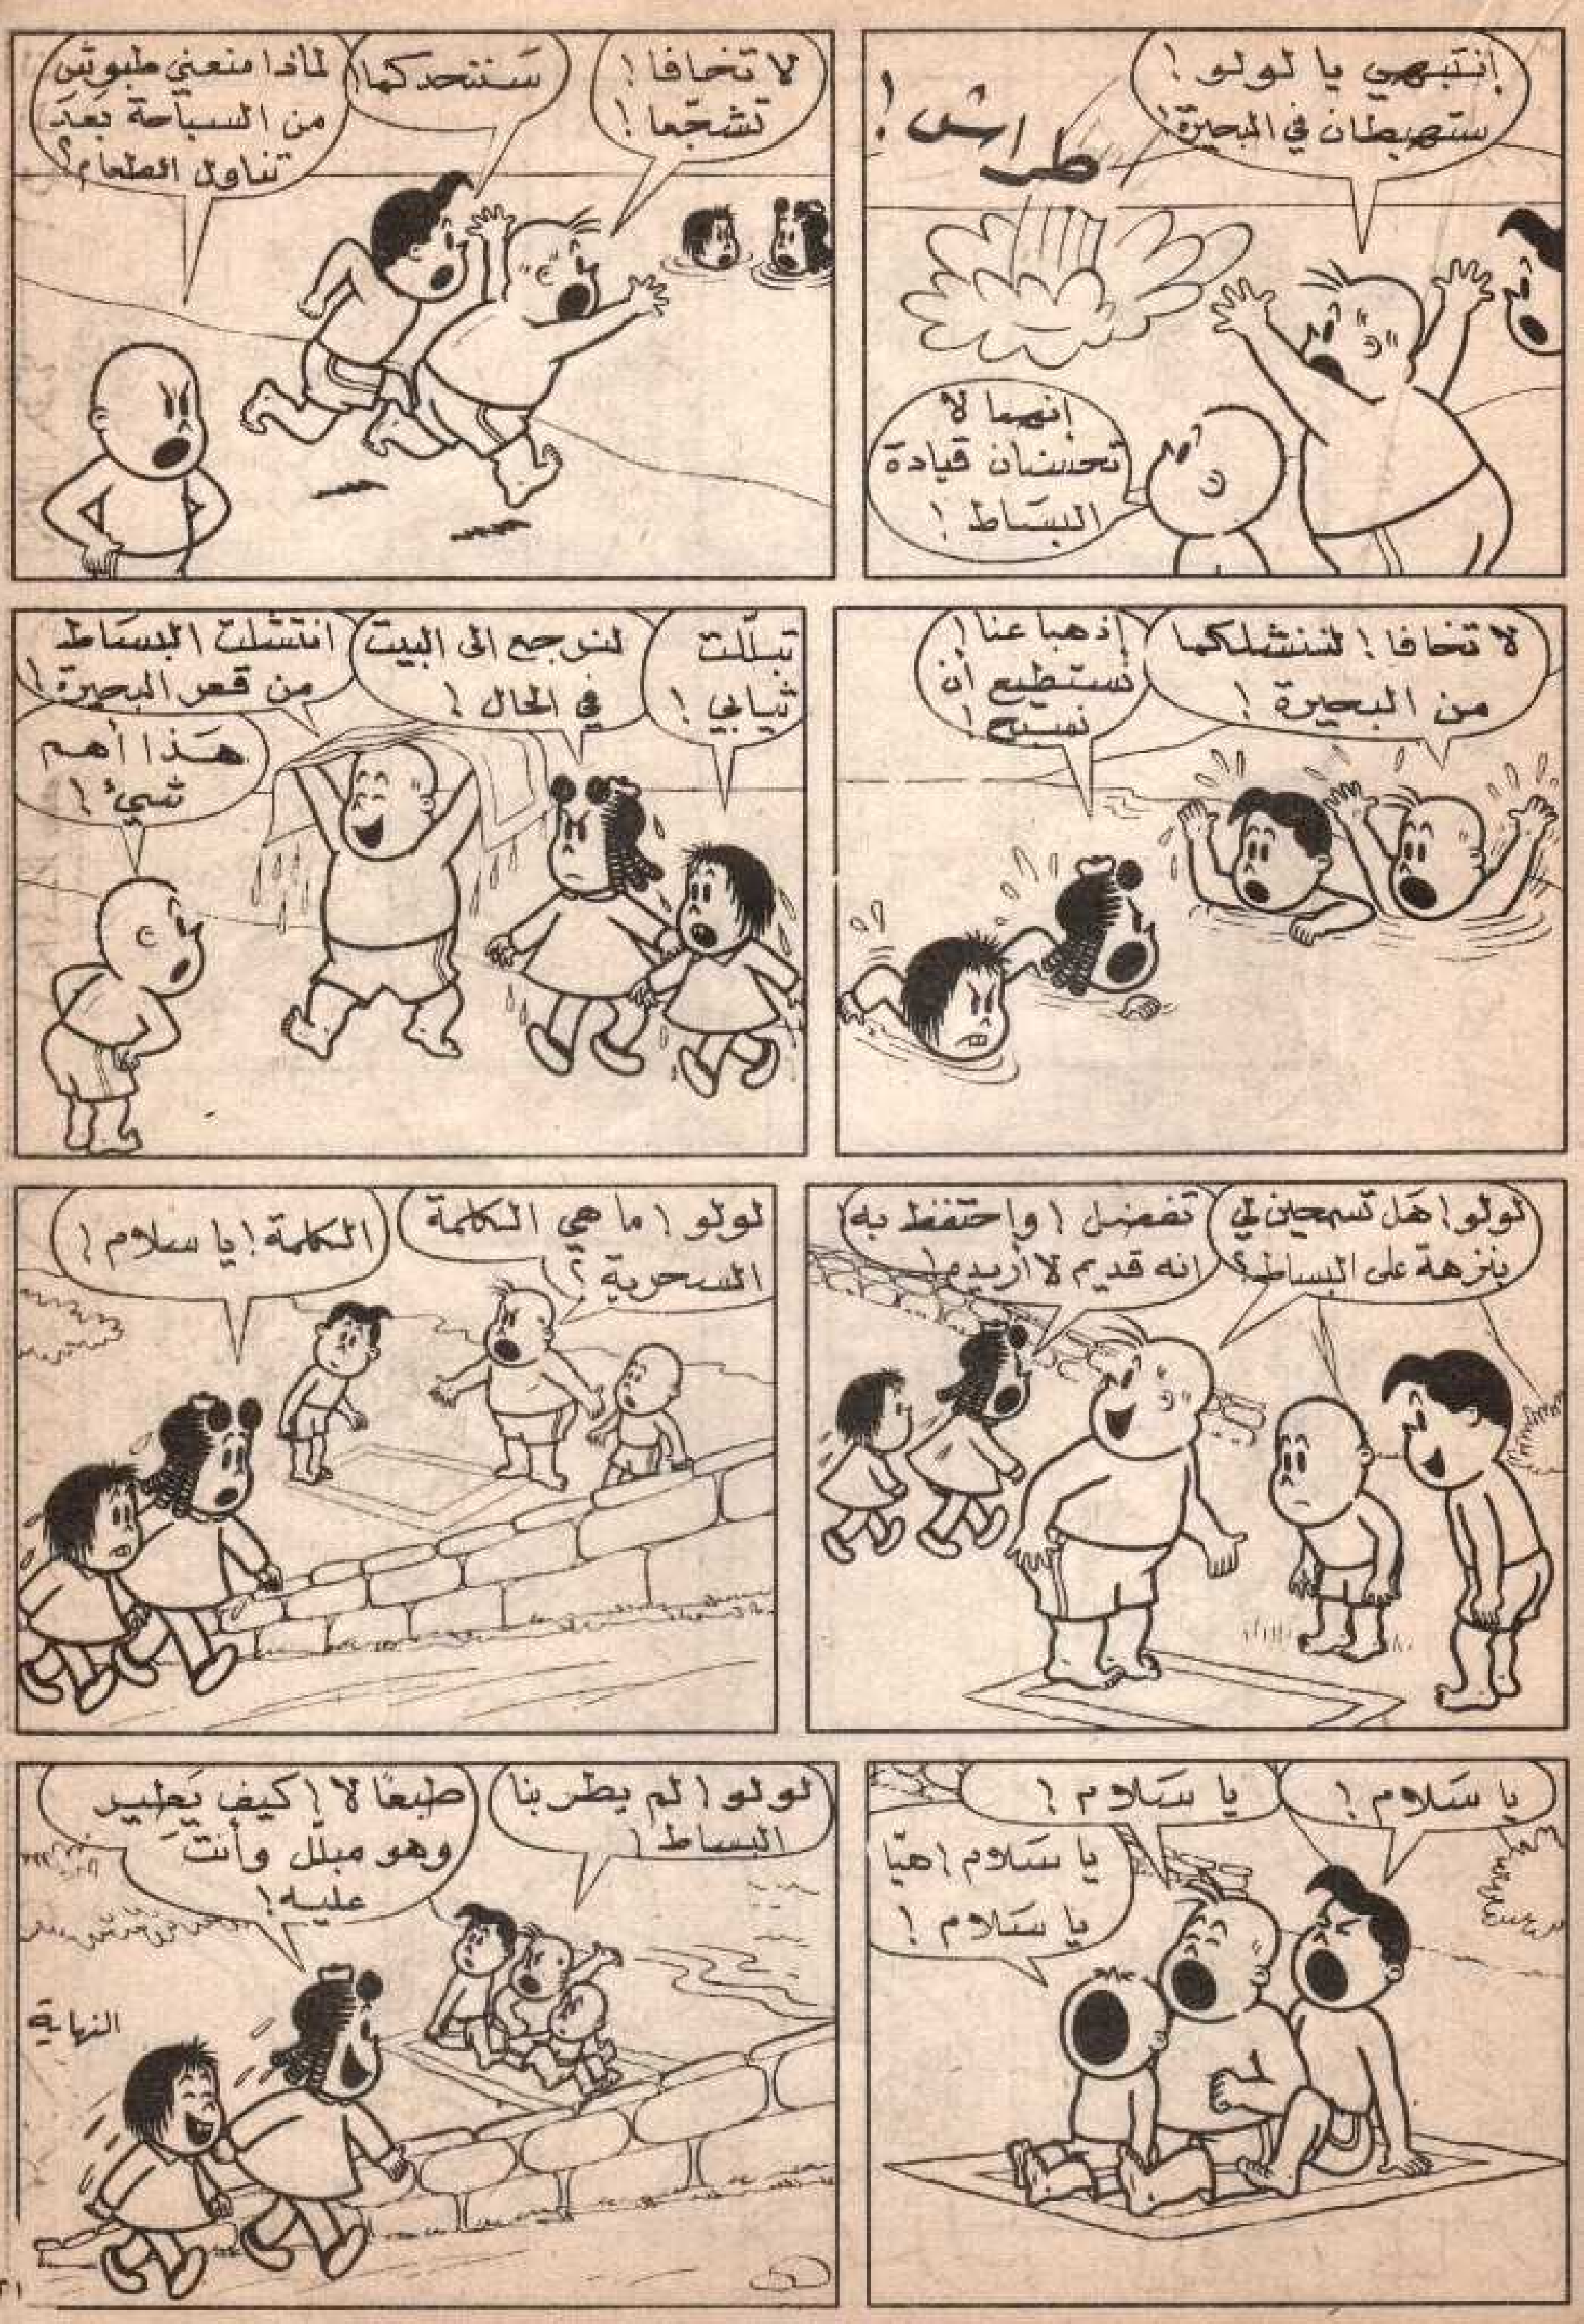 إنتبهي يا لولو !
ستهبطان في البحيرة !
طراش !
إنهما لا
تحسنان قيادة
البسَاط !
لا تخافا !
تشجّعا !
سَننجدكما !
لماذا منعني طبوش
من السباحة بَعدَ
تناول الطعام ؟
لا تخافا ! لننشلكما
من البحيرة !
إذهبا عنا !
نستطيع أن
نسبح !
تبلّلت
ثيابي !
لنرجع الى البيت
في الحال !
انتشلت البسَاط
من قعر البحيرة !
هَذا أهم
شيء !
لولو ! هَل تسمحين لي
بنزهة على البساط ؟
تفضل ! واحتفظ به !
انه قديم لا أريده !
لولو ! ما هي الكلمة
السحرية ؟
الكلمة ! يا سلام !
يا سَلام !
يا سَلام !
يا سَلام ! هيّا
يا سَلام !
لولو ! لم يطر بنا
البساط !
طبعًا لا ! كيف يَطير
وهو مبلل وأنتَ
عليه !
النهاية